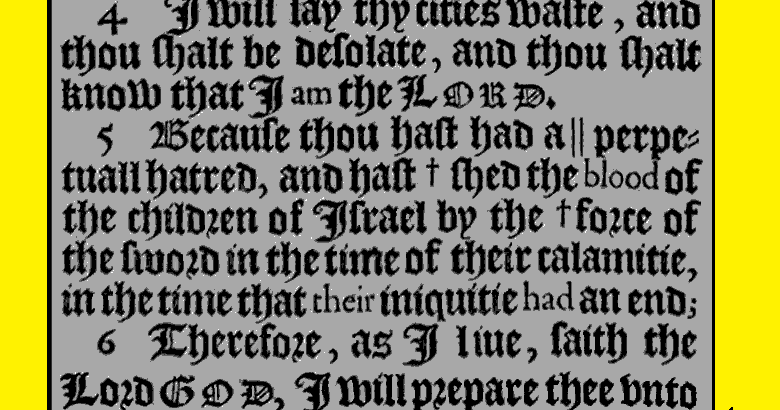 4 I will lay thy cities waſte, and
thou ſhalt be deſolate, and thou ſhalt
know that I am the LORD.
5 Becauſe thou haſt had a || perpe-
tuall hatred, and haſt † ſhed the blood of
the children of Iſrael by the † force of
the ſword in the time of their calamitie,
in the time that their iniquitie had an end;
6 Therefore, as I liue, ſaith the
Lord GOD, I will prepare thee vnto